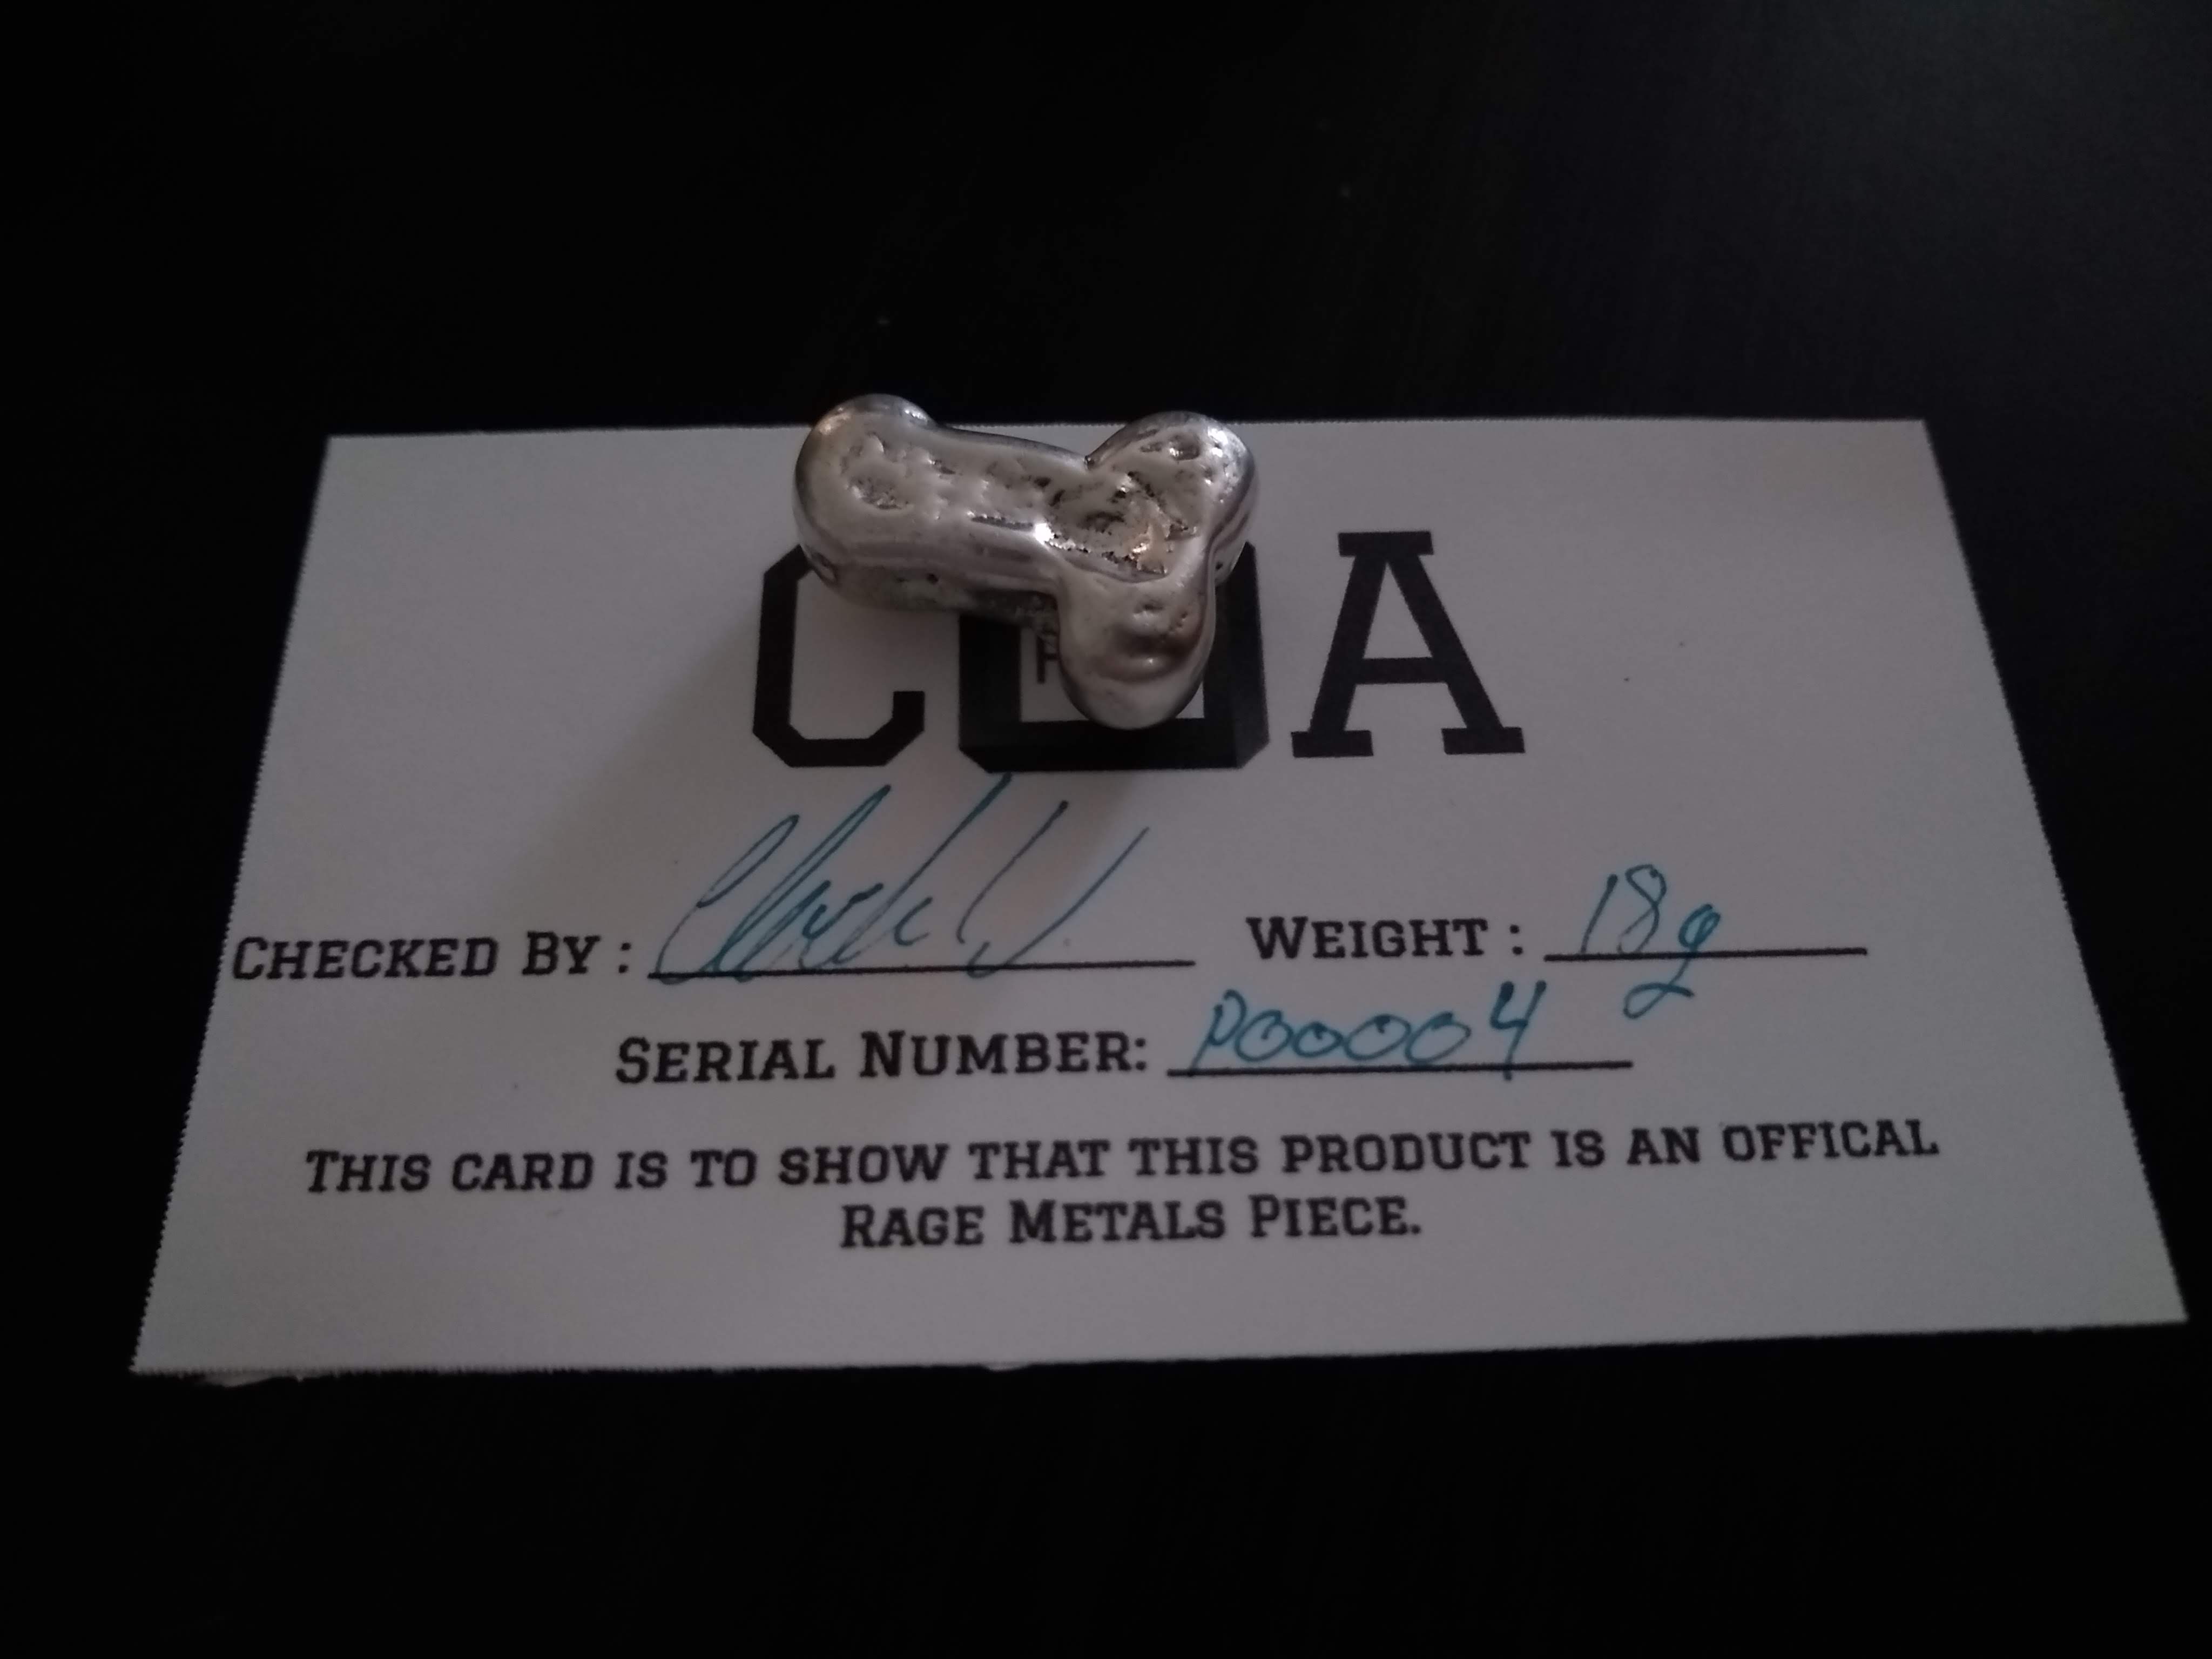 COA
CHECKED BY : WEIGHT : 18g
SERIAL NUMBER: P00004
THIS CARD IS TO SHOW THAT THIS PRODUCT IS AN OFFICAL
RAGE METALS PIECE.